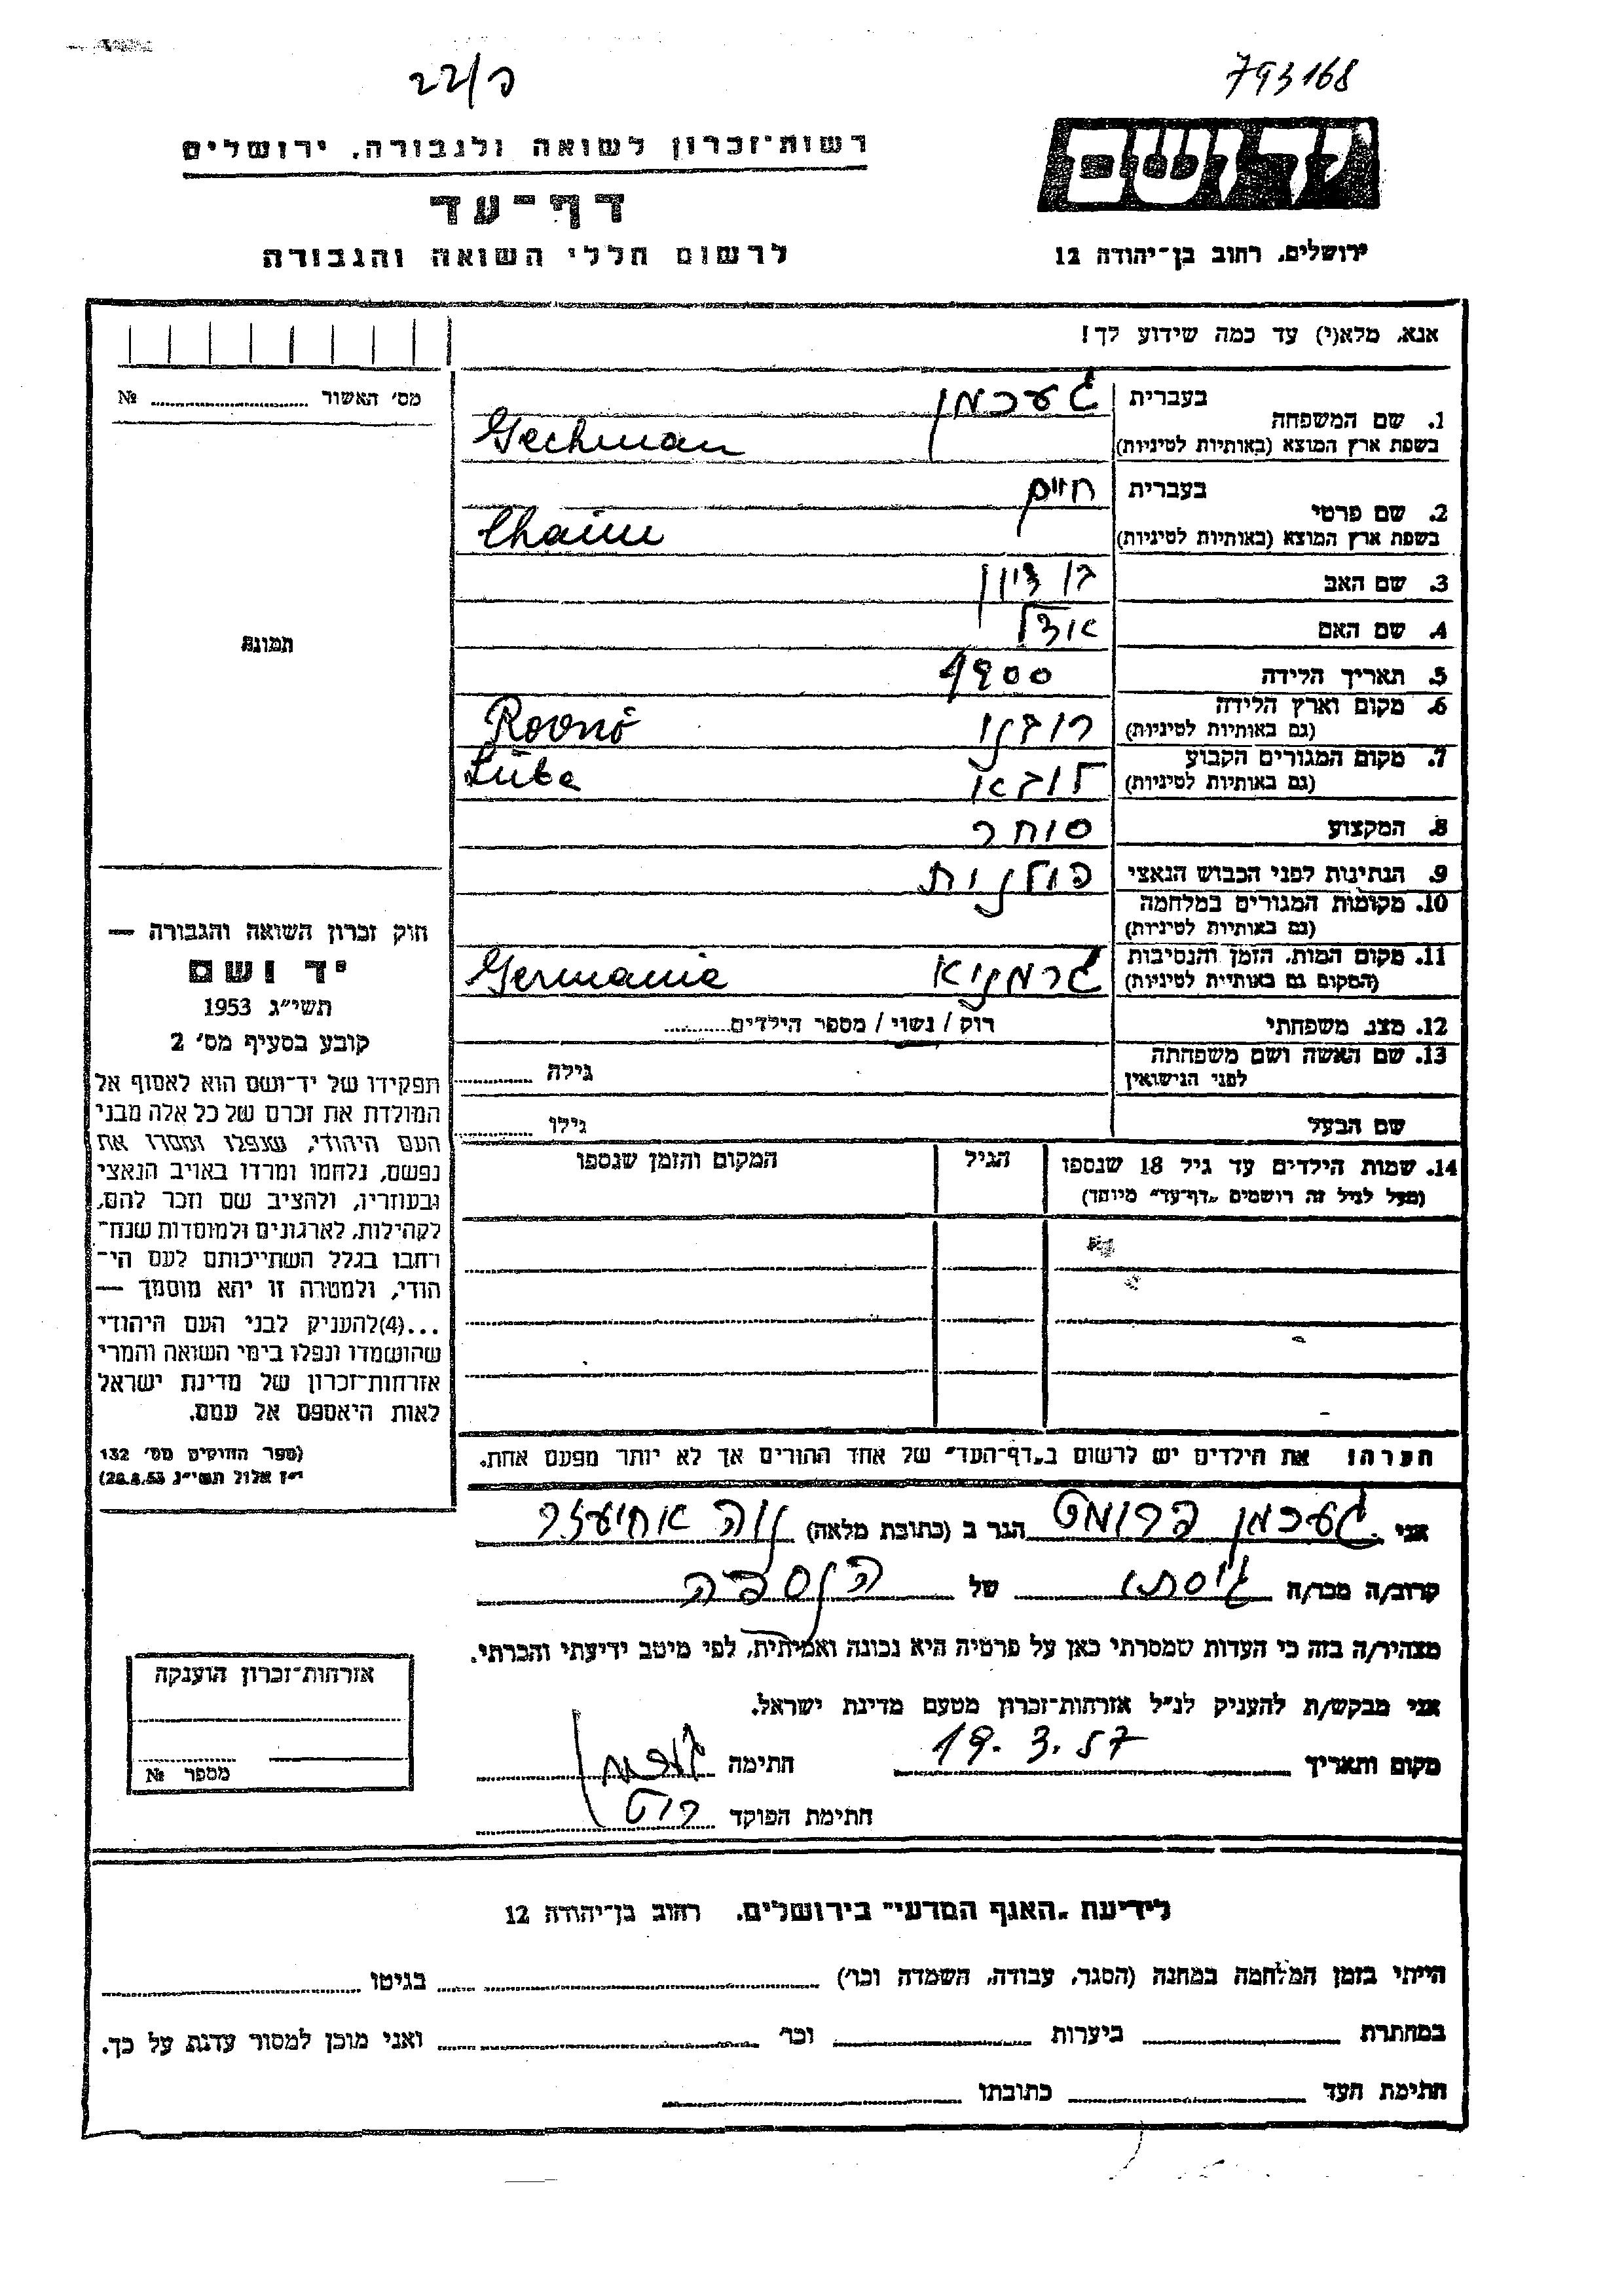 פ/22
793168
רשות־זכרון לשואה ולגבורה, ירושלים
דף־עד
לרשום חללי השואה והגבורה
יד ושם
ירושלים, רחוב בן־יהודה 12
אנא, מלא(י) עד כמה שידוע לך!
מס' האשור № 
תמונה
1. שם המשפחה
בעברית געכמן
בשפת ארץ המוצא (באותיות לטיניות) Gechman
2. שם פרטי
בעברית חיים
בשפת ארץ המוצא (באותיות לטיניות) Chaim
3. שם האב בן ציון
4. שם האם
5. תאריך הלידה 1900
6. מקום וארץ הלידה רובנו Rovno
(גם באותיות לטיניות)
7. מקום המגורים הקבוע לובא Luba
(גם באותיות לטיניות)
8. המקצוע סוחר
9. הנתינות לפני הכבוש הנאצי פולנית
10. מקומות המגורים במלחמה
(גם באותיות לטיניות)
11. מקום המות, הזמן והנסיבות גרמניא Germania
(המקום גם באותיות לטיניות)
12. מצב משפחתי רוק / נשוי / מספר הילדים
13. שם האשה ושם משפחתה
לפני הנישואין גילה
שם הבעל גילו
14. שמות הילדים עד גיל 18 שנספו הגיל המקום והזמן שנספו
(מעל לגיל זה רושמים "דף־עד" מיוחד)
הערה! את הילדים יש לרשום ב"דף־העד" של אחד ההורים אך לא יותר מפעם אחת.
חוק זכרון השואה והגבורה —
יד ושם
תשי"ג 1953
קובע בסעיף מס' 2
תפקידו של יד־ושם הוא לאסוף אל
המולדת את זכרם של כל אלה מבני
העם היהודי, שנפלו ומסרו את
נפשם, נלחמו ומרדו באויב הנאצי
ובעוזריו, ולהציב שם וזכר להם,
לקהילות, לארגונים ולמוסדות שנח־
רחבו בגלל השתייכותם לעם הי־
הודי, ולמטרה זו יהא מוסמך —
...(4) להעניק לבני העם היהודי
שהושמדו ונפלו בימי השואה והמרי
אזרחות־זכרון של מדינת ישראל
לאות היאספם אל עמם.
(ספר החוקים מס' 132
י"ז אלול תשי"ג 28.8.53)
אני געכמן פרומט הגר ב (כתובת מלאה) נוה אחיעזר
קרוב/ה מכר/ה גיסתו של הנספה
מצהיר/ה בזה כי העדות שמסרתי כאן על פרטיה היא נכונה ואמיתית, לפי מיטב ידיעתי והכרתי.
אני מבקש/ת להעניק לנ"ל אזרחות־זכרון מטעם מדינת ישראל.
מקום ותאריך 19.3.57 חתימה
חתימת הפוקד
אזרחות־זכרון הוענקה
מספר №
לידיעת "האגף המדעי" בירושלים, רחוב בן־יהודה 12
הייתי בזמן המלחמה במחנה (הסגר, עבודה, השמדה וכו') בגיטו
במחתרת ביערות וכו' ואני מוכן למסור עדות על כך.
חתימת העד כתובתו